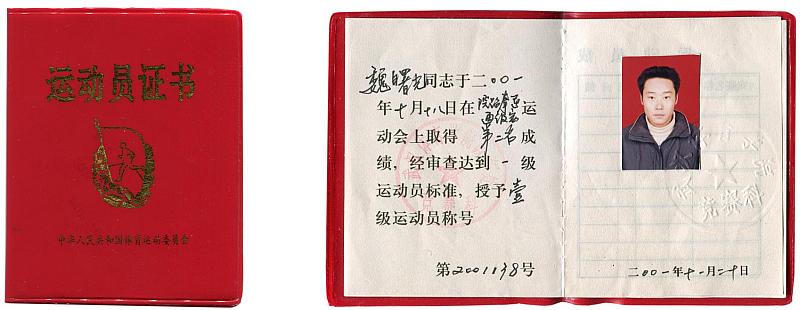 运动员证书
中华人民共和国体育运动委员会
魏曙光同志于二〇〇一
年十月十八日在
运
动会上取得 第二名成
绩，经审查达到一级
运动员标准，授予壹
级运动员称号
第2001138号
竞赛科
二〇〇一年十一月二十日